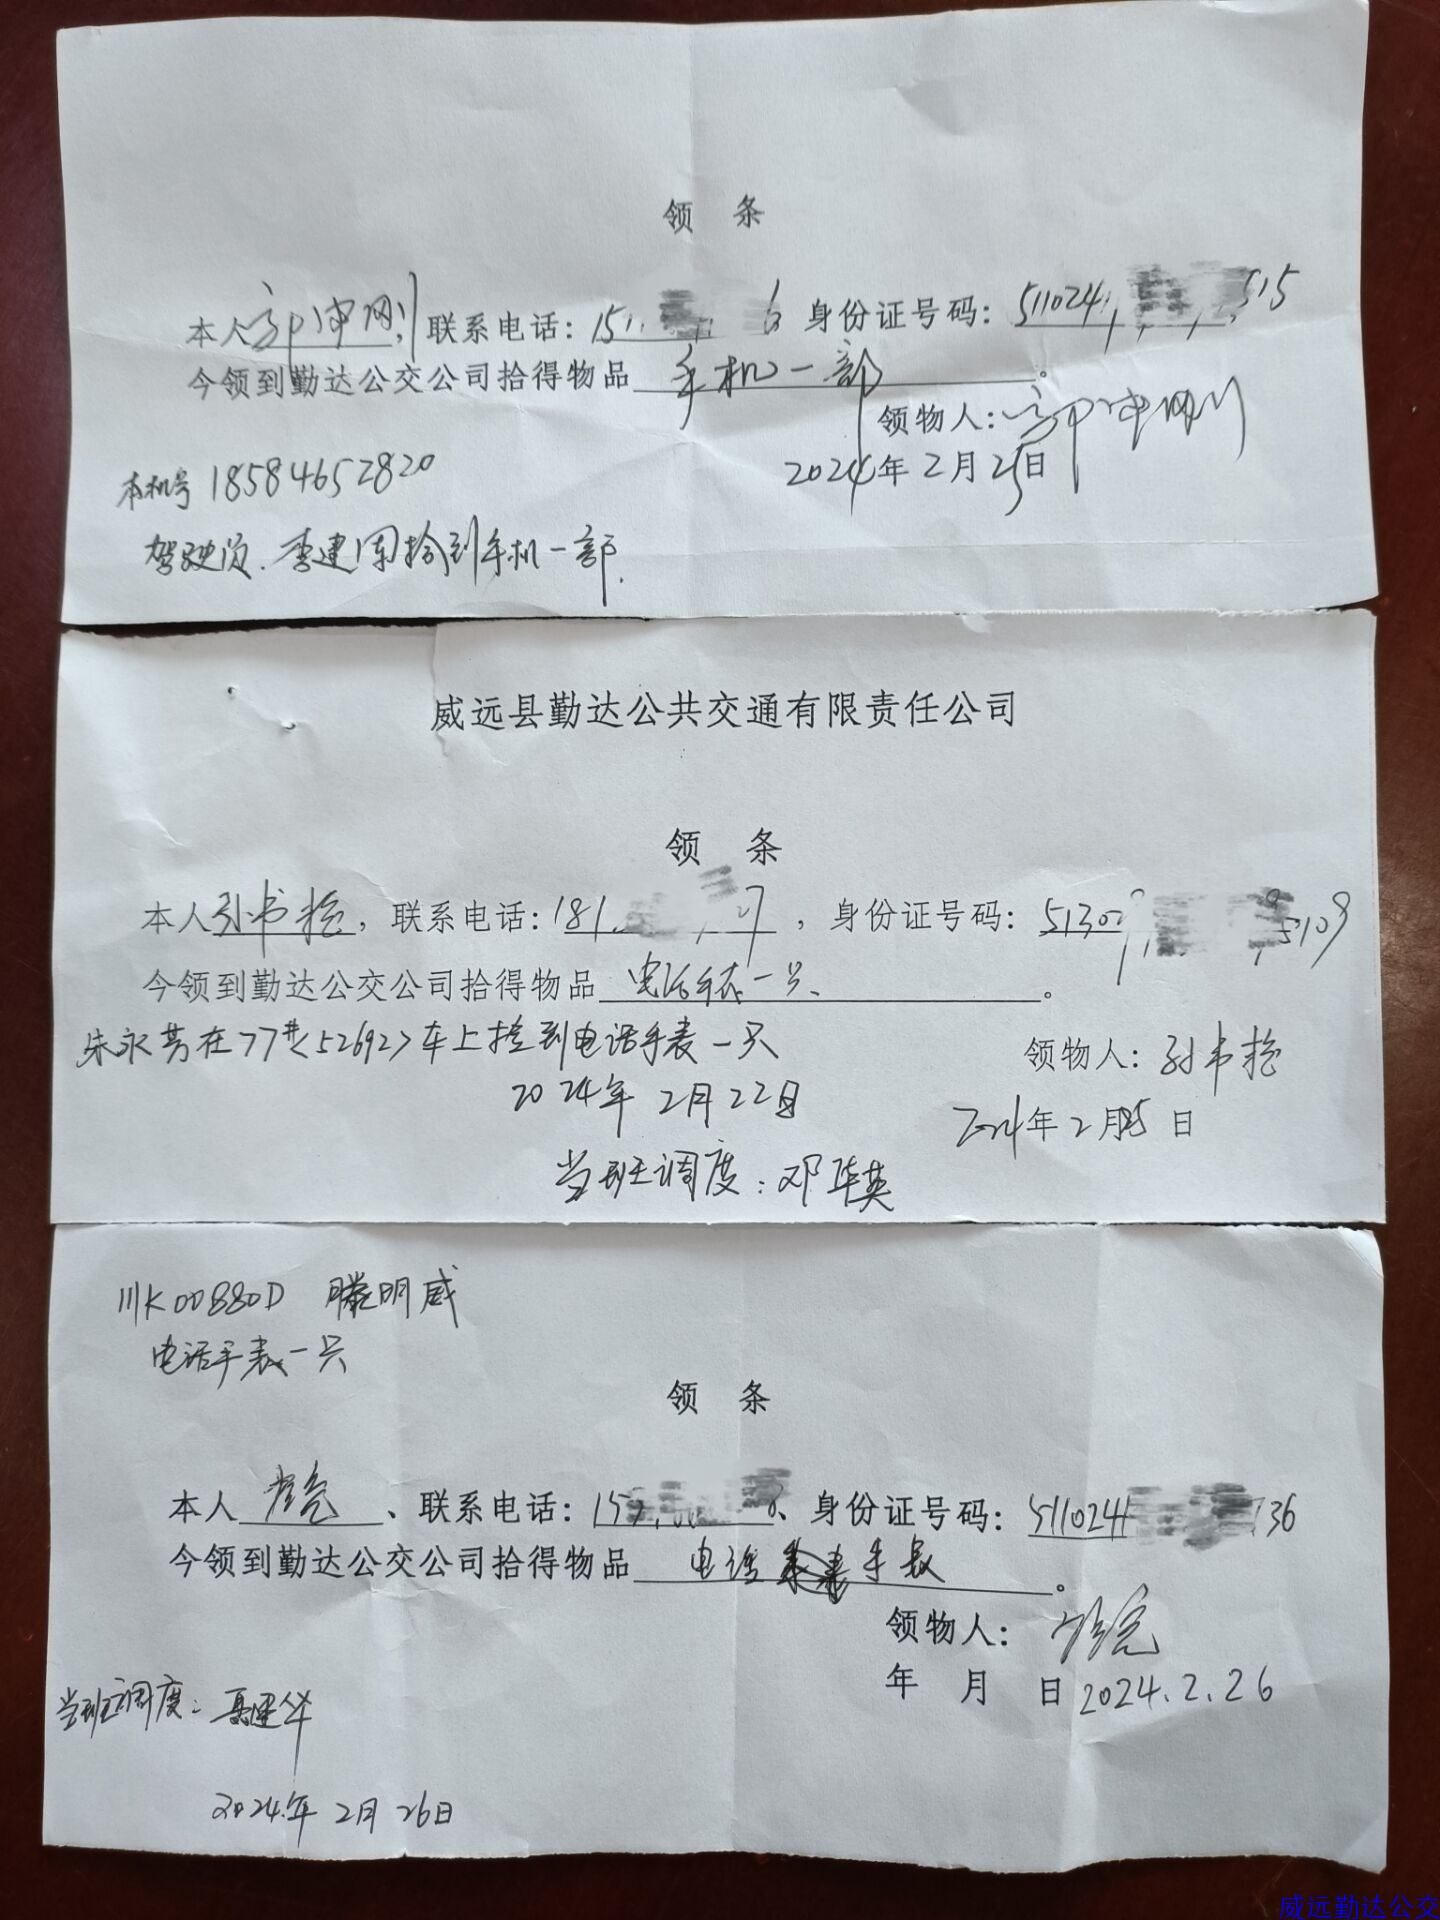 领 条
本人 联系电话：151 6 身份证号码：511024 515
今领到勤达公交公司拾得物品 手机一部。
领物人：
2024年2月25日
本机号 18584652820
驾驶员. 李建国拾到手机一部.
威远县勤达公共交通有限责任公司
领 条
本人 ，联系电话：181 27 ，身份证号码：51302 5109
今领到勤达公交公司拾得物品 电话手表一只、。
朱永芳在77#<52692>车上捡到电话手表一只
领物人：
2024年 2月22日
2024年2月25日
当班调度：邓华英
川K00880D 滕明威
电话手表一只
领 条
本人 、联系电话：15 6、身份证号码：511024 136
今领到勤达公交公司拾得物品 电话 手表。
领物人：
年 月 日 2024.2.26
当班调度：聂建华
2024年2月26日
威远勤达公交